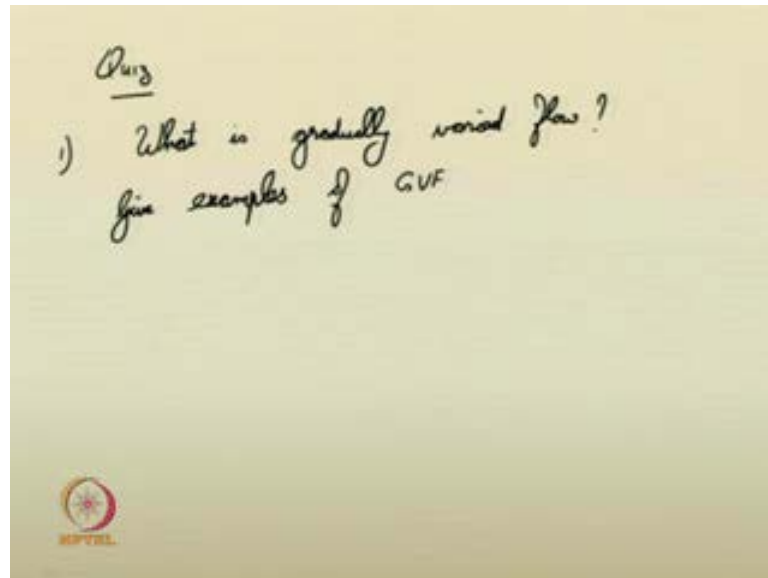 Quiz
1) What is gradually varied flow?
Give examples of GVF
NPTEL